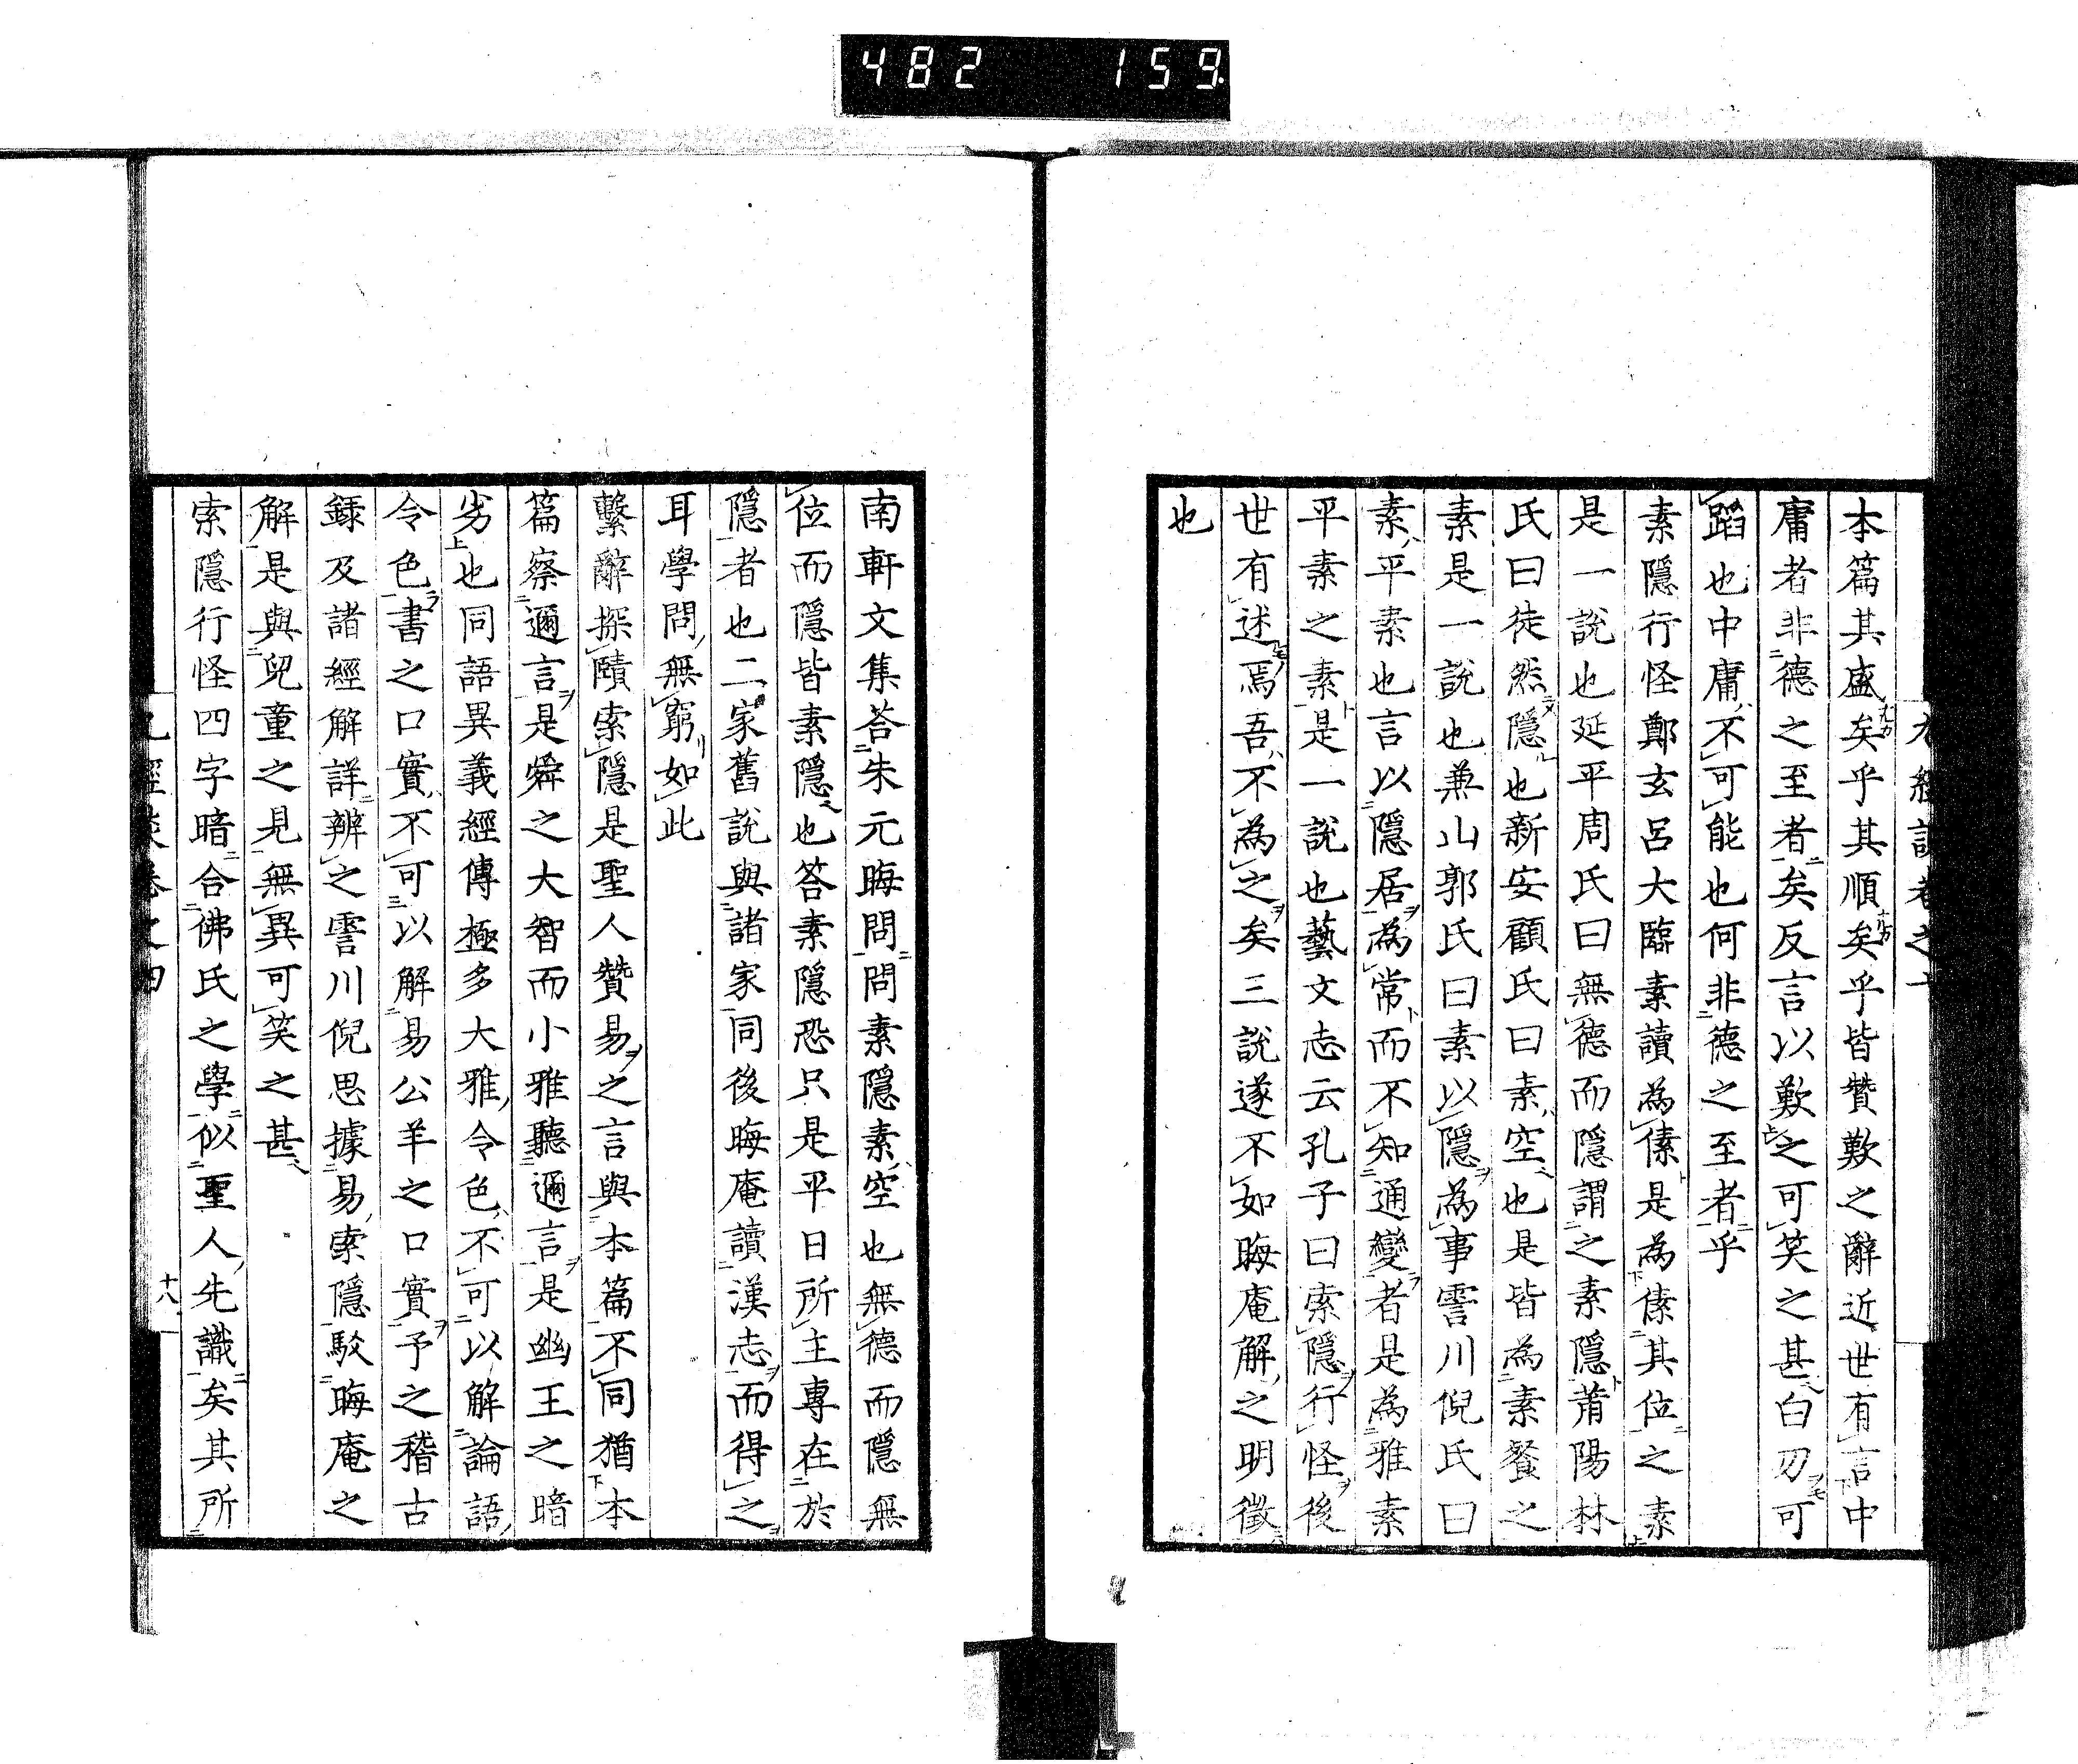 482 159
本篇其盛矣乎其順矣乎皆贊歎之辭近世有言中
庸者非德之至者矣反言以歎之可笑之甚白刃可
蹈也中庸不可能也何非德之至者乎
素隱行怪鄭玄呂大臨素讀為傃是為傃其位之素
是一說也延平周氏曰無德而隱謂之素隱莆陽林
氏曰徒然隱也新安顧氏曰素空也是皆為素餐之
素是一說也兼山郭氏曰素以隱為事霅川倪氏曰
素平素也言以隱居為常而不知通變者是為雅素
平素之素是一說也藝文志云孔子曰索隱行怪後
世有述焉吾不為之矣三說遂不如晦庵解之明徵
也
南軒文集荅朱元晦問問素隱素空也無德而隱無
位而隱皆素隱也答素隱恐只是平日所主專在於
隱者也二家舊說與諸家同後晦庵讀漢志而得之
耳學問無窮如此
繫辭探賾索隱是聖人贊易之言與本篇不同猶本
篇察邇言是舜之大智而小雅聽邇言是幽王之暗
劣也同語異義經傳極多大雅令色不可以解論語
令色書之口實不可以解易公羊之口實予之稽古
錄及諸經解詳辨之霅川倪思據易索隱駁晦庵之
解是與兒童之見無異可笑之甚
索隱行怪四字暗合佛氏之學似聖人先識矣其所
九經談卷之四
十八